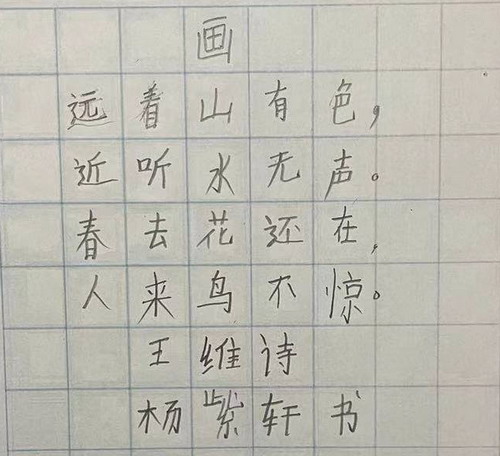 画
远着山有色，
近听水无声。
春去花还在，
人来鸟不惊。
王维诗
杨紫轩书